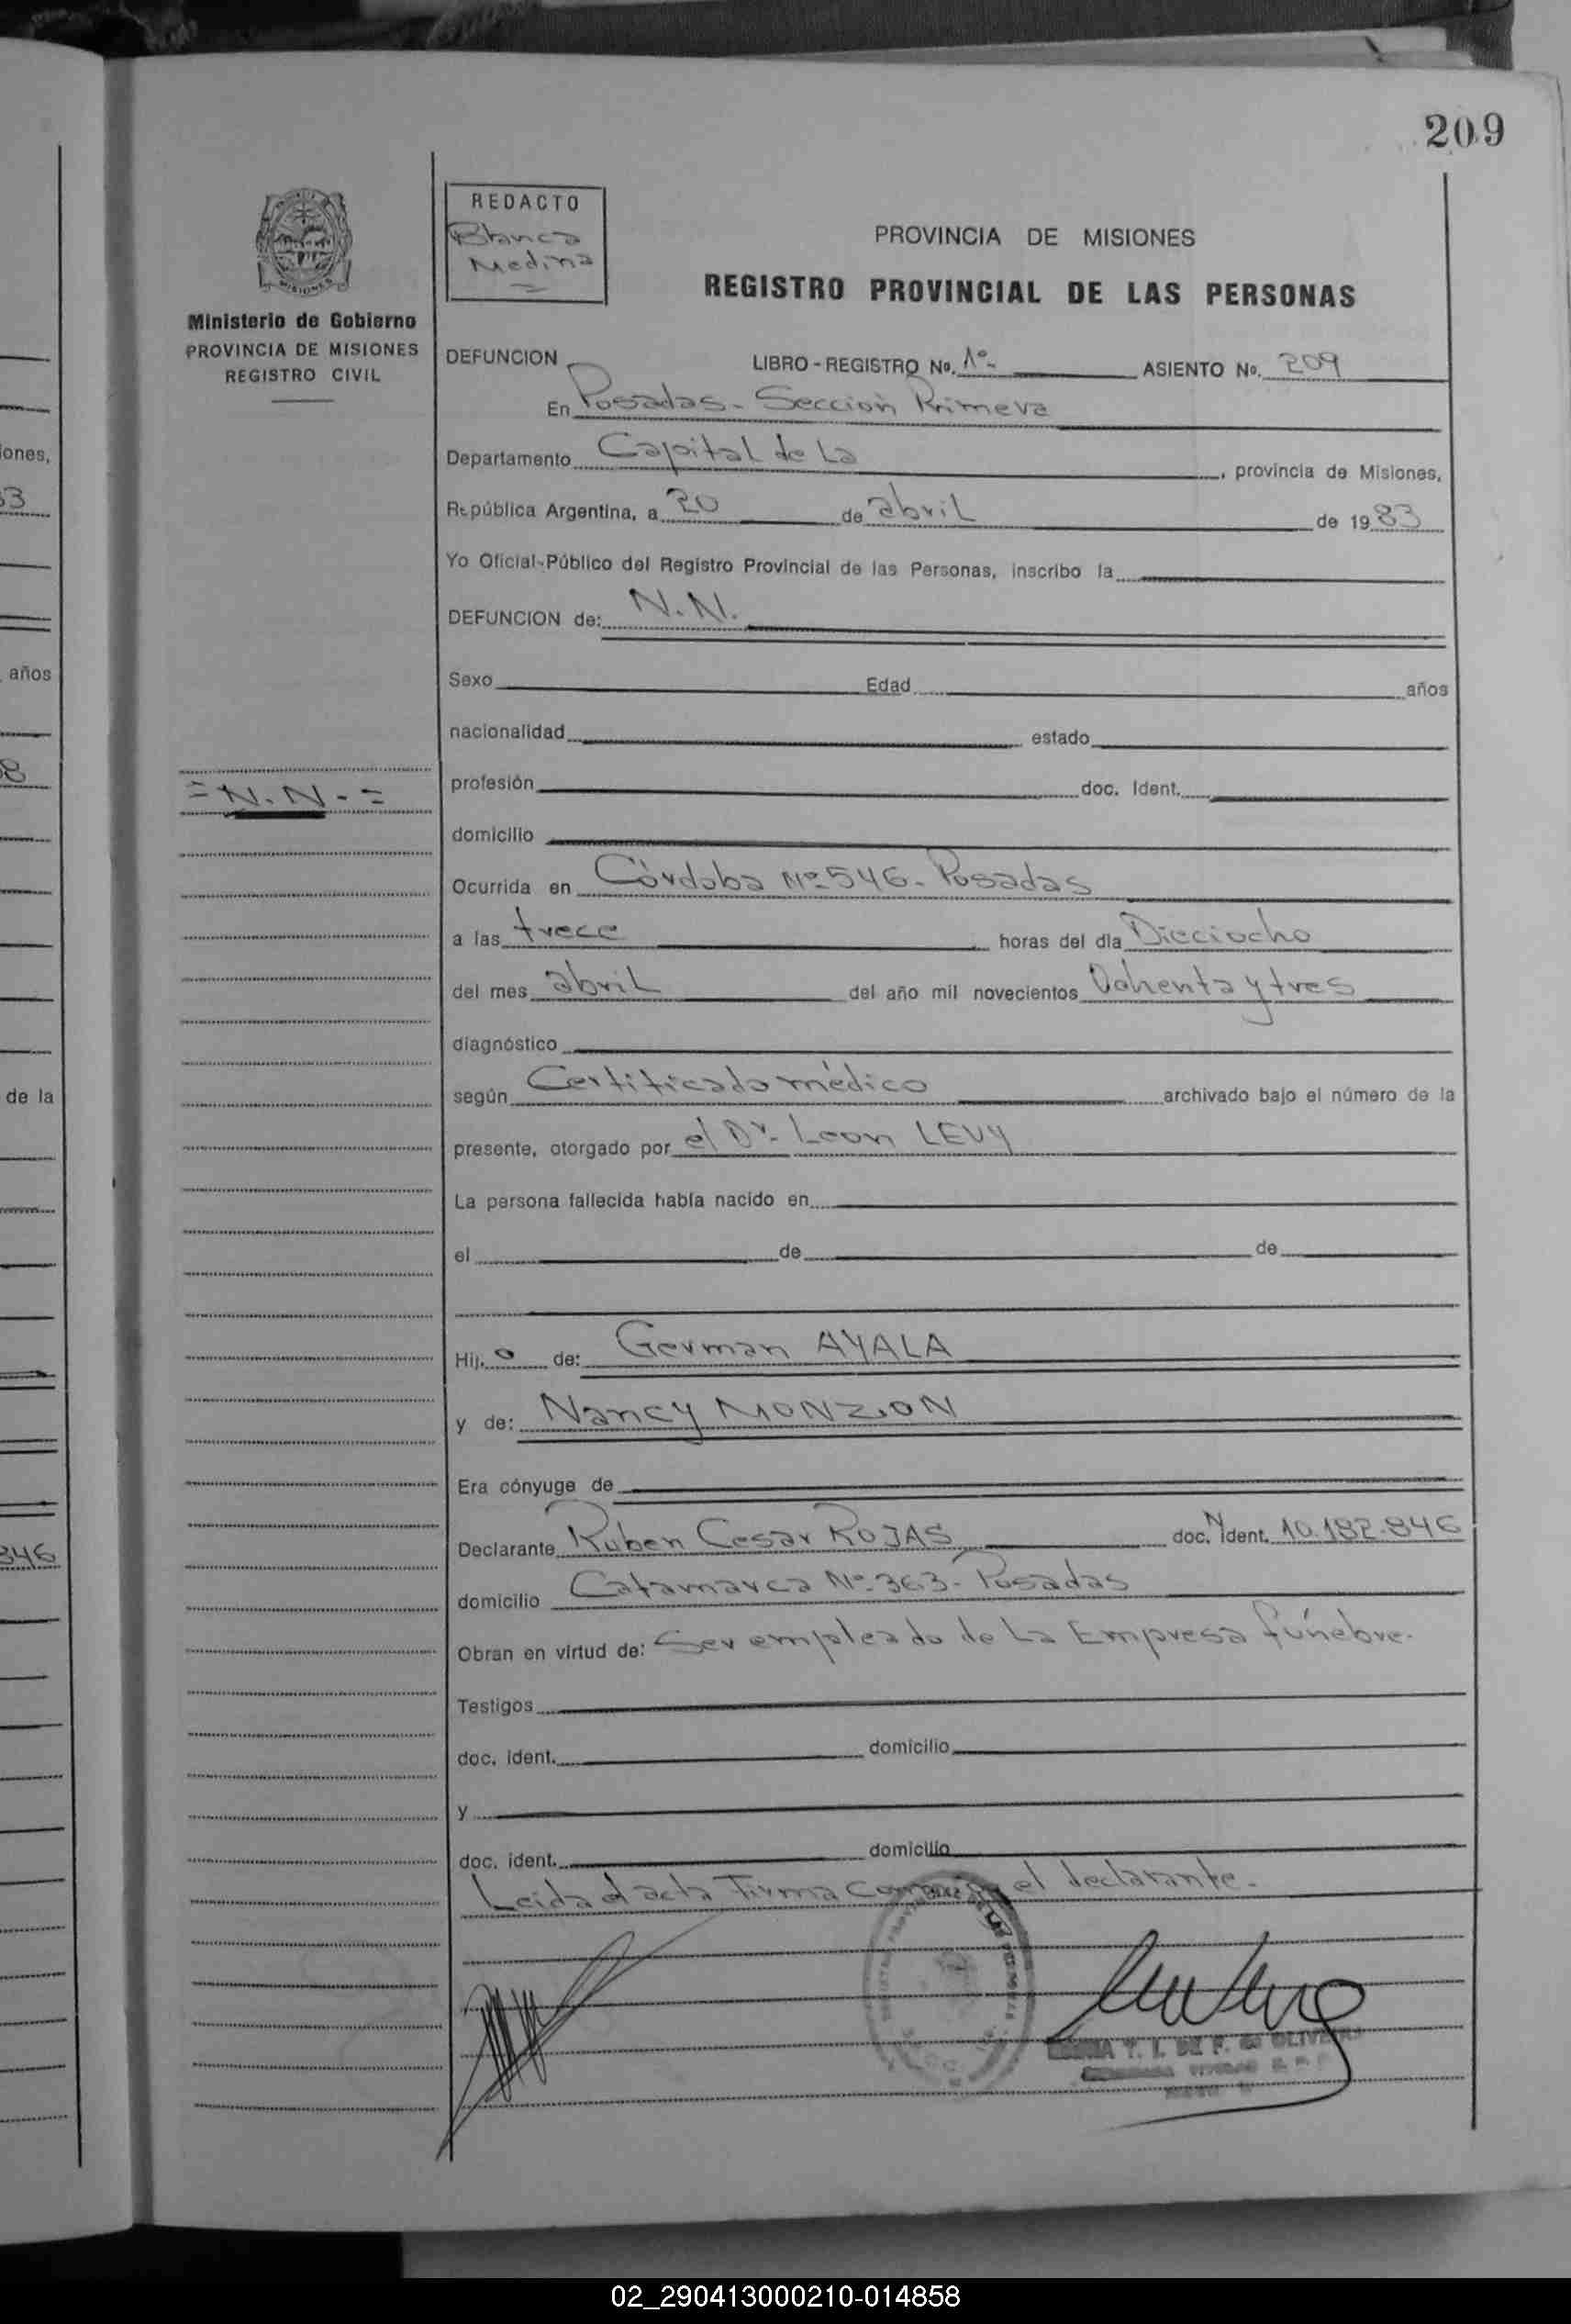 209
REDACTO
Blanca
Medina
PROVINCIA DE MISIONES
REGISTRO PROVINCIAL DE LAS PERSONAS
MISIONES
Ministerio de Gobierno
PROVINCIA DE MISIONES
REGISTRO CIVIL
DEFUNCION LIBRO - REGISTRO No. 1º- ASIENTO No. 209
En Posadas - Sección Primera
Departamento Capital de La , provincia de Misiones,
República Argentina, a 20 de abril de 1983
Yo Oficial-Público del Registro Provincial de las Personas, inscribo la
DEFUNCION de: N.N.
Sexo Edad años
nacionalidad estado
profesión doc. Ident.
= N.N - =
domicilio
Ocurrida en Córdoba Nº 546 - Posadas
a las trece horas del día Dieciocho
del mes abril del año mil novecientos Ochenta y tres
diagnóstico
según Certificado médico archivado bajo el número de la
presente, otorgado por el Dr. Leon LEVY
La persona fallecida había nacido en
el de de
Hij o de: German AYALA
y de: Nancy MONZON
Era cónyuge de
Declarante Ruben Cesar ROJAS doc. N ident. 10.182.846
domicilio Catamarca Nº 363 - Posadas
Obran en virtud de: Ser empleado de La Empresa fúnebre.
Testigos
doc. ident. domicilio
y
doc. ident. domicilio
Leída el acta firma el declarante.
T. I. DE F. DI
iones,
33
años
8
de la
346
02_290413000210-014858